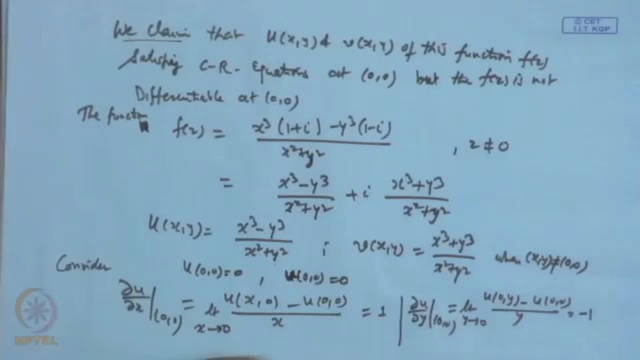 © CET
I.I.T. KGP
We claim that u(x,y) & v(x,y) of this function f(z)
Satisfying C-R- Equations at (0,0) but the f(z) is not
Differentiable at (0,0)
The functn f(z) = x³(1+i) - y³(1-i) / x²+y² , z ≠ 0
= x³-y³ / x²+y² + i x³+y³ / x²+y²
u(x,y) = x³-y³ / x²+y² ; v(x,y) = x³+y³ / x²+y² when (x,y)≠(0,0)
Consider u(0,0)=0 , v(0,0)=0
∂u/∂x |(0,0) = lt x→0 u(x,0) - u(0,0) / x = 1 | ∂u/∂y |(0,0) = lt y→0 u(0,y) - u(0,0) / y = -1
NPTEL